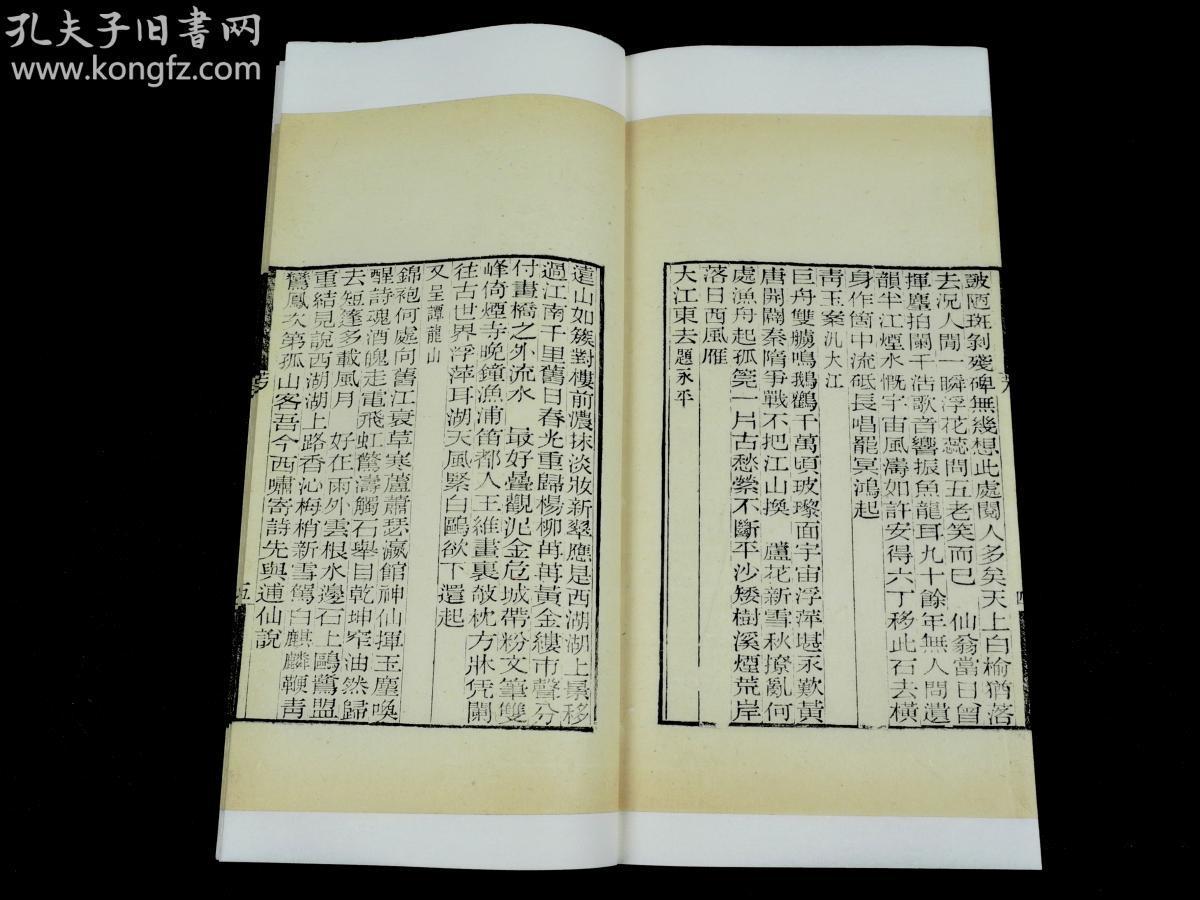 孔夫子旧书网
www.kongfz.com
皷陋斑剝殘碑無幾想此處閱人多矣天上白榆猶落
去況人間一瞬浮花蕊問五老笑而已　仙翁當日曾
揮麈拍闌干浩歌音響振魚龍耳九十餘年無人問遺
韻半江煙水慨宇宙風濤如許安得六丁移此石去橫
身作箇中流砥長唱罷冥鴻起
靑玉案 汎大江
巨舟雙艣鳴鵝鸛千萬頃玻瓈面宇宙浮萍堪永歎黃
唐開闢秦隋爭戰不把江山換　蘆花新雪秋撩亂何
處漁舟起孤筦一片古愁縈不斷平沙矮樹溪煙荒岸
落日西風雁
大江東去 題永平
遠山如簇對樓前濃抹淡妝新翠應是西湖湖上景移
過江南千里舊日春光重歸楊柳苒苒黃金縷市聲分
付畫橋之外流水　最好疊觀泥金危城帶粉文筆雙
峰倚煙寺晚鐘漁浦笛都入王維畫裏敧枕方牀凭闌
往古世界浮萍耳湖天風緊白鷗欲下還起
又 呈譚龍山
錦袍何處向舊江衰草寒蘆蕭瑟瀛館神仙揮玉麈喚
醒詩魂酒魄走電飛虹驚濤觸石舉目乾坤窄油然歸
去短篷多載風月　好在雨外雲根水邊石上鷗鷺盟
重結見說西湖湖上路香沁梅梢新雪鶴白麒麟鞭靑
鸞鳳次第孤山客吾今西嘯寄詩先與逋仙說
五